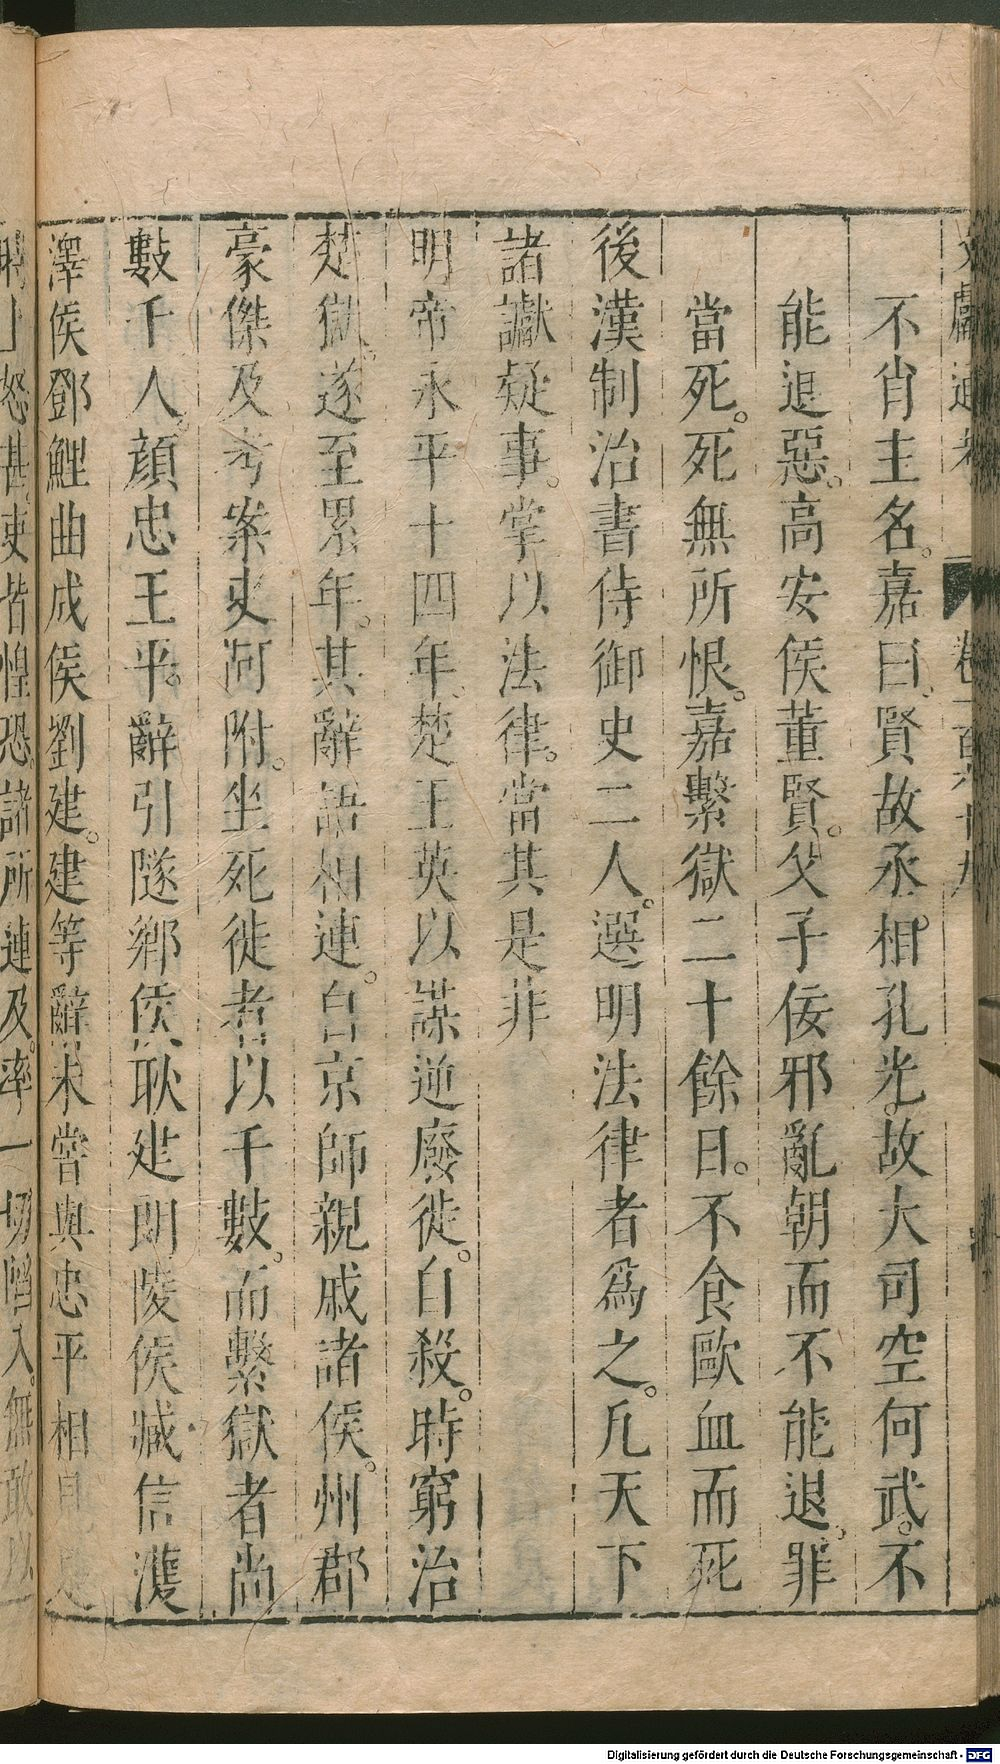 不肖主名。嘉曰。賢故丞相。孔光。故大司空何武。不
能退惡。高安侯董賢。父子佞邪亂朝而不能退。罪
當死。死無所恨。嘉繫獄二十餘日。不食歐血而死
後漢制治書侍御史二人。選明法律者為之。凡天下
諸讞疑事。掌以法律。當其是非
明帝永平十四年。楚王英以謀逆廢徙。自殺。時窮治
楚獄。遂至累年。其辭語相連。自京師親戚諸侯。州郡
豪傑及考案吏阿附。坐死徙者以千數。而繫獄者尚
數千人。顏忠王平。辭引隧鄉侯耿建朗陵侯臧信濩
澤侯鄧鯉曲成侯劉建。建等辭未嘗與忠平相見
怒甚。吏皆惶恐。諸所連及。率一切陷入。無敢以
Digitalisierung gefördert durch die Deutsche Forschungsgemeinschaft - DFG